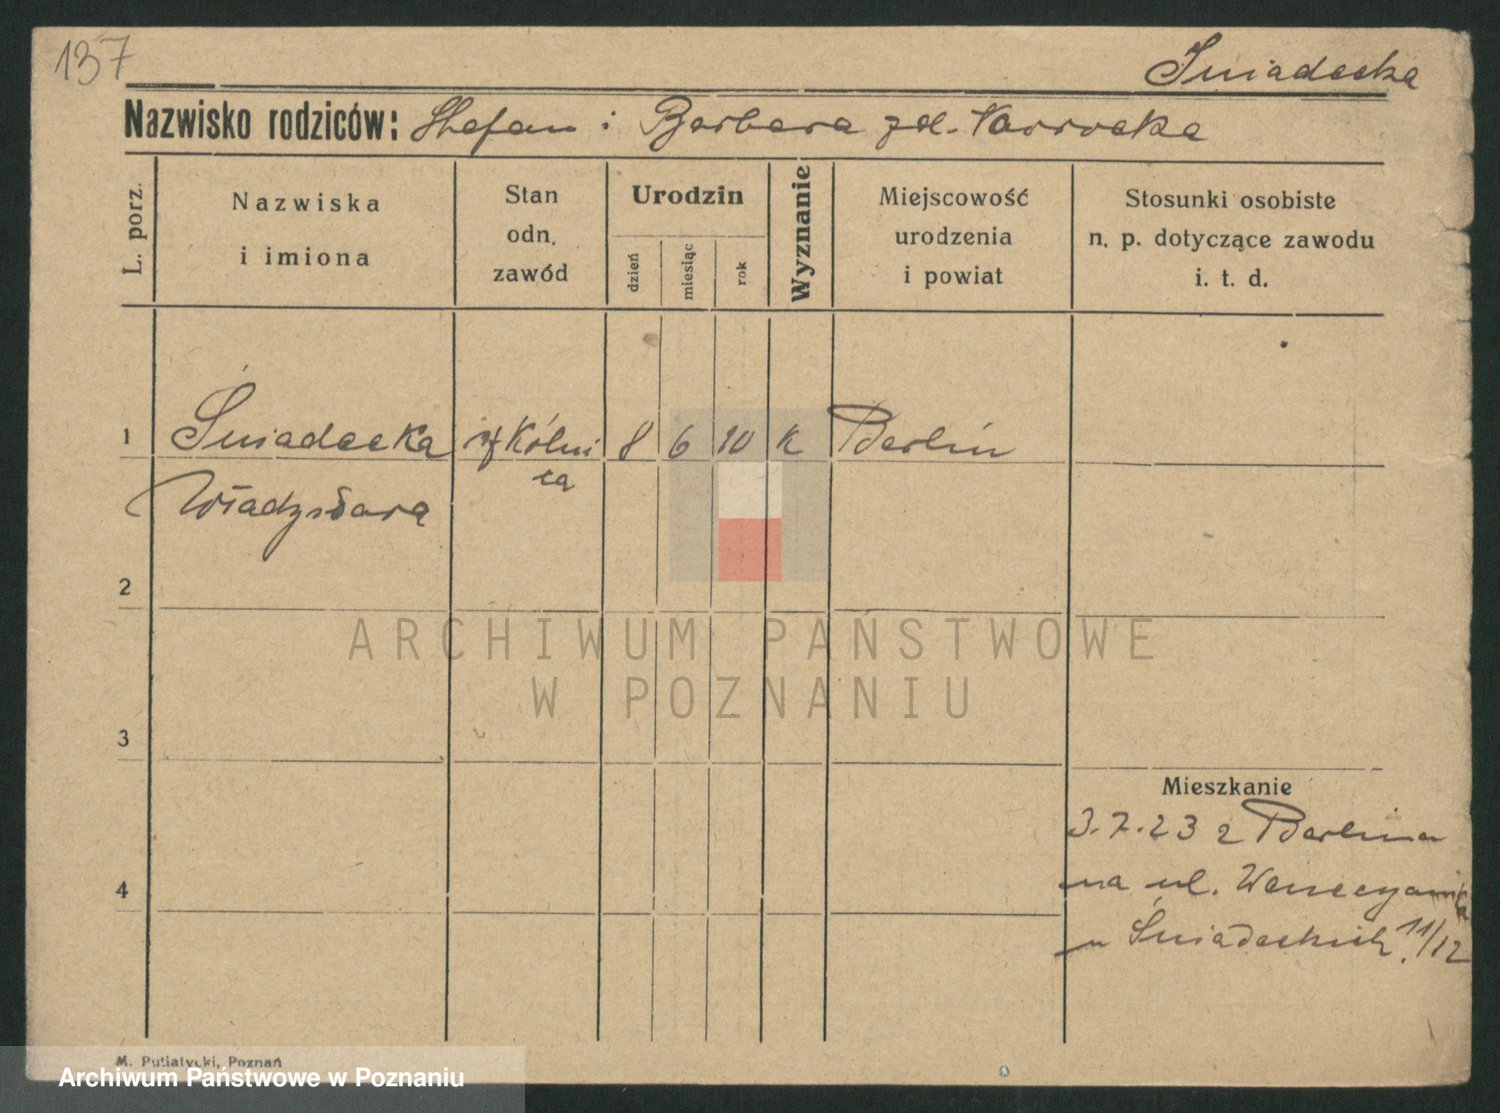 137
Śniadecka
Nazwisko rodziców: Stefan i Barbara
L. porz.
Nazwiska
i imiona
Stan
odn.
zawód
Urodzin
dzień
miesiąc
rok
Wyznanie
Miejscowość
urodzenia
i powiat
Stosunki osobiste
n. p. dotyczące zawodu
i. t. d.
1 Śniadecka 8 6 10 k Berlin
Władysława
2
ARCHIWUM PAŃSTWOWE
W POZNANIU
3
Mieszkanie
3.7.23 z Berlina
4
na ul.
u Śniadeckich 11/12
M. Putiatycki, Poznań
Archiwum Państwowe w Poznaniu